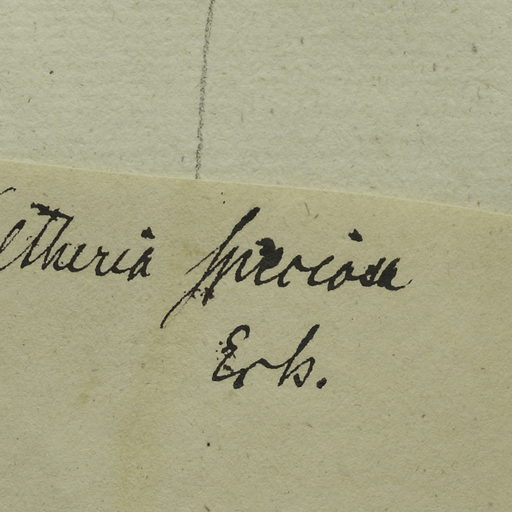 etheria speciosa
Erb.